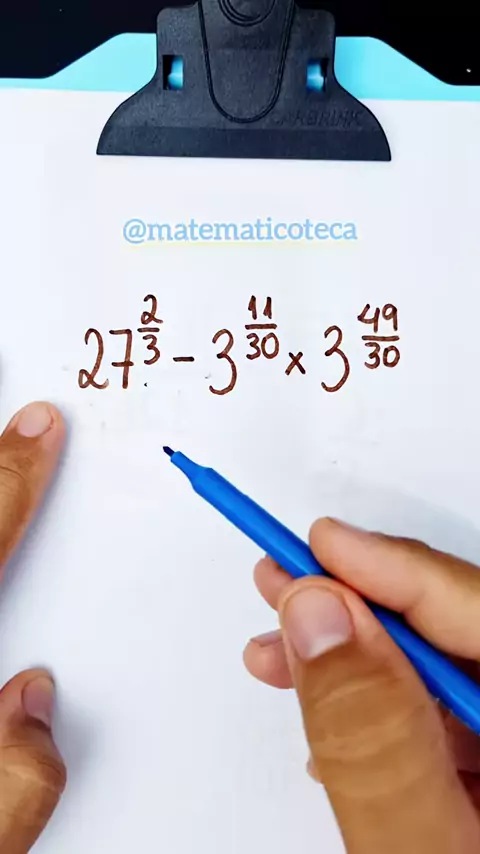 @matematicoteca
27^(2/3) − 3^(11/30) × 3^(49/30)